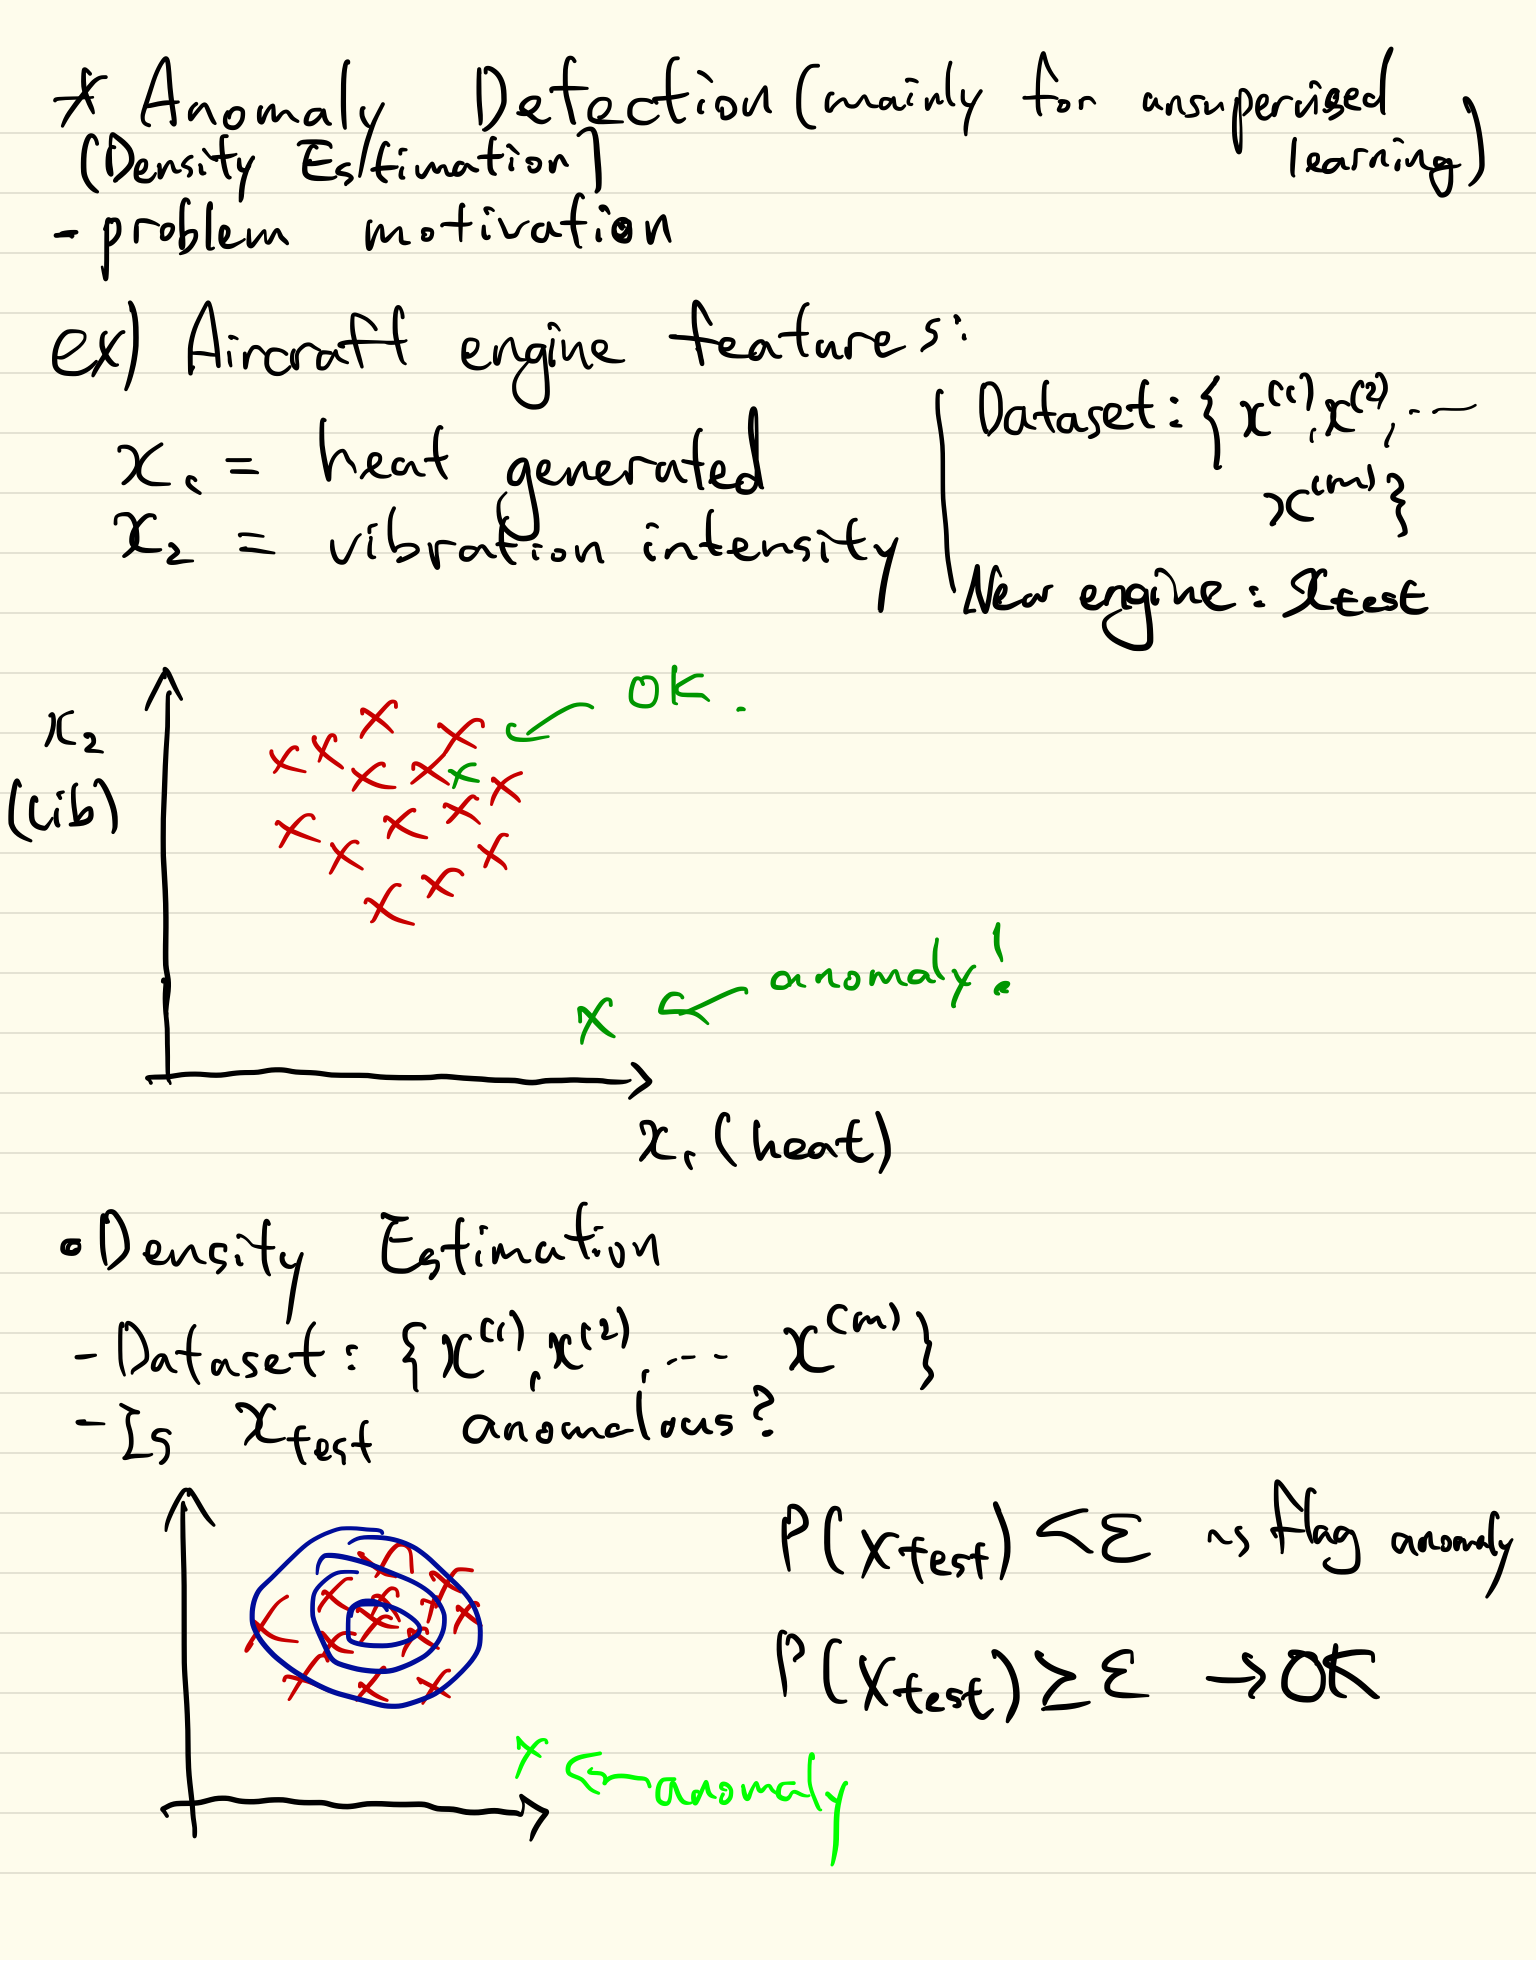 * Anomaly Detection (mainly for ansupervised learning)
(Density Estimation)
- problem motivation
ex) Aircraft engine features:
x₁ = heat generated
x₂ = vibration intensity
Dataset: { x⁽¹⁾, x⁽²⁾, ...
x⁽ᵐ⁾ }
New engine: xtest
OK.
x₂
(vib)
anomaly!
x₁ (heat)
• Density Estimation
- Dataset: { x⁽¹⁾, x⁽²⁾, ... x⁽ᵐ⁾ }
- Is xtest anomalous?
P(xtest) < ε ~> flag anomaly
P(xtest) ≥ ε → OK
x ← anomaly